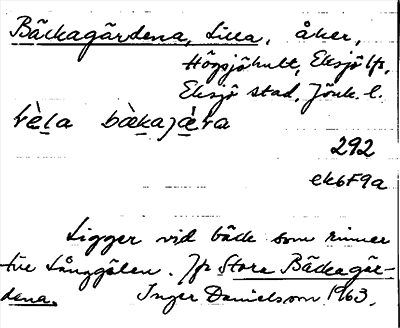 Bäckagärdena, Lilla, åker,
Högsjöhult, Eksjö lfs,
Eksjö stad, Jönk. l.
292
ek6F9a
Ligger vid bäck som rinner
t Långgölen. Jfr Stora Bäckagär-
dena. Inger Danielsson 1963.